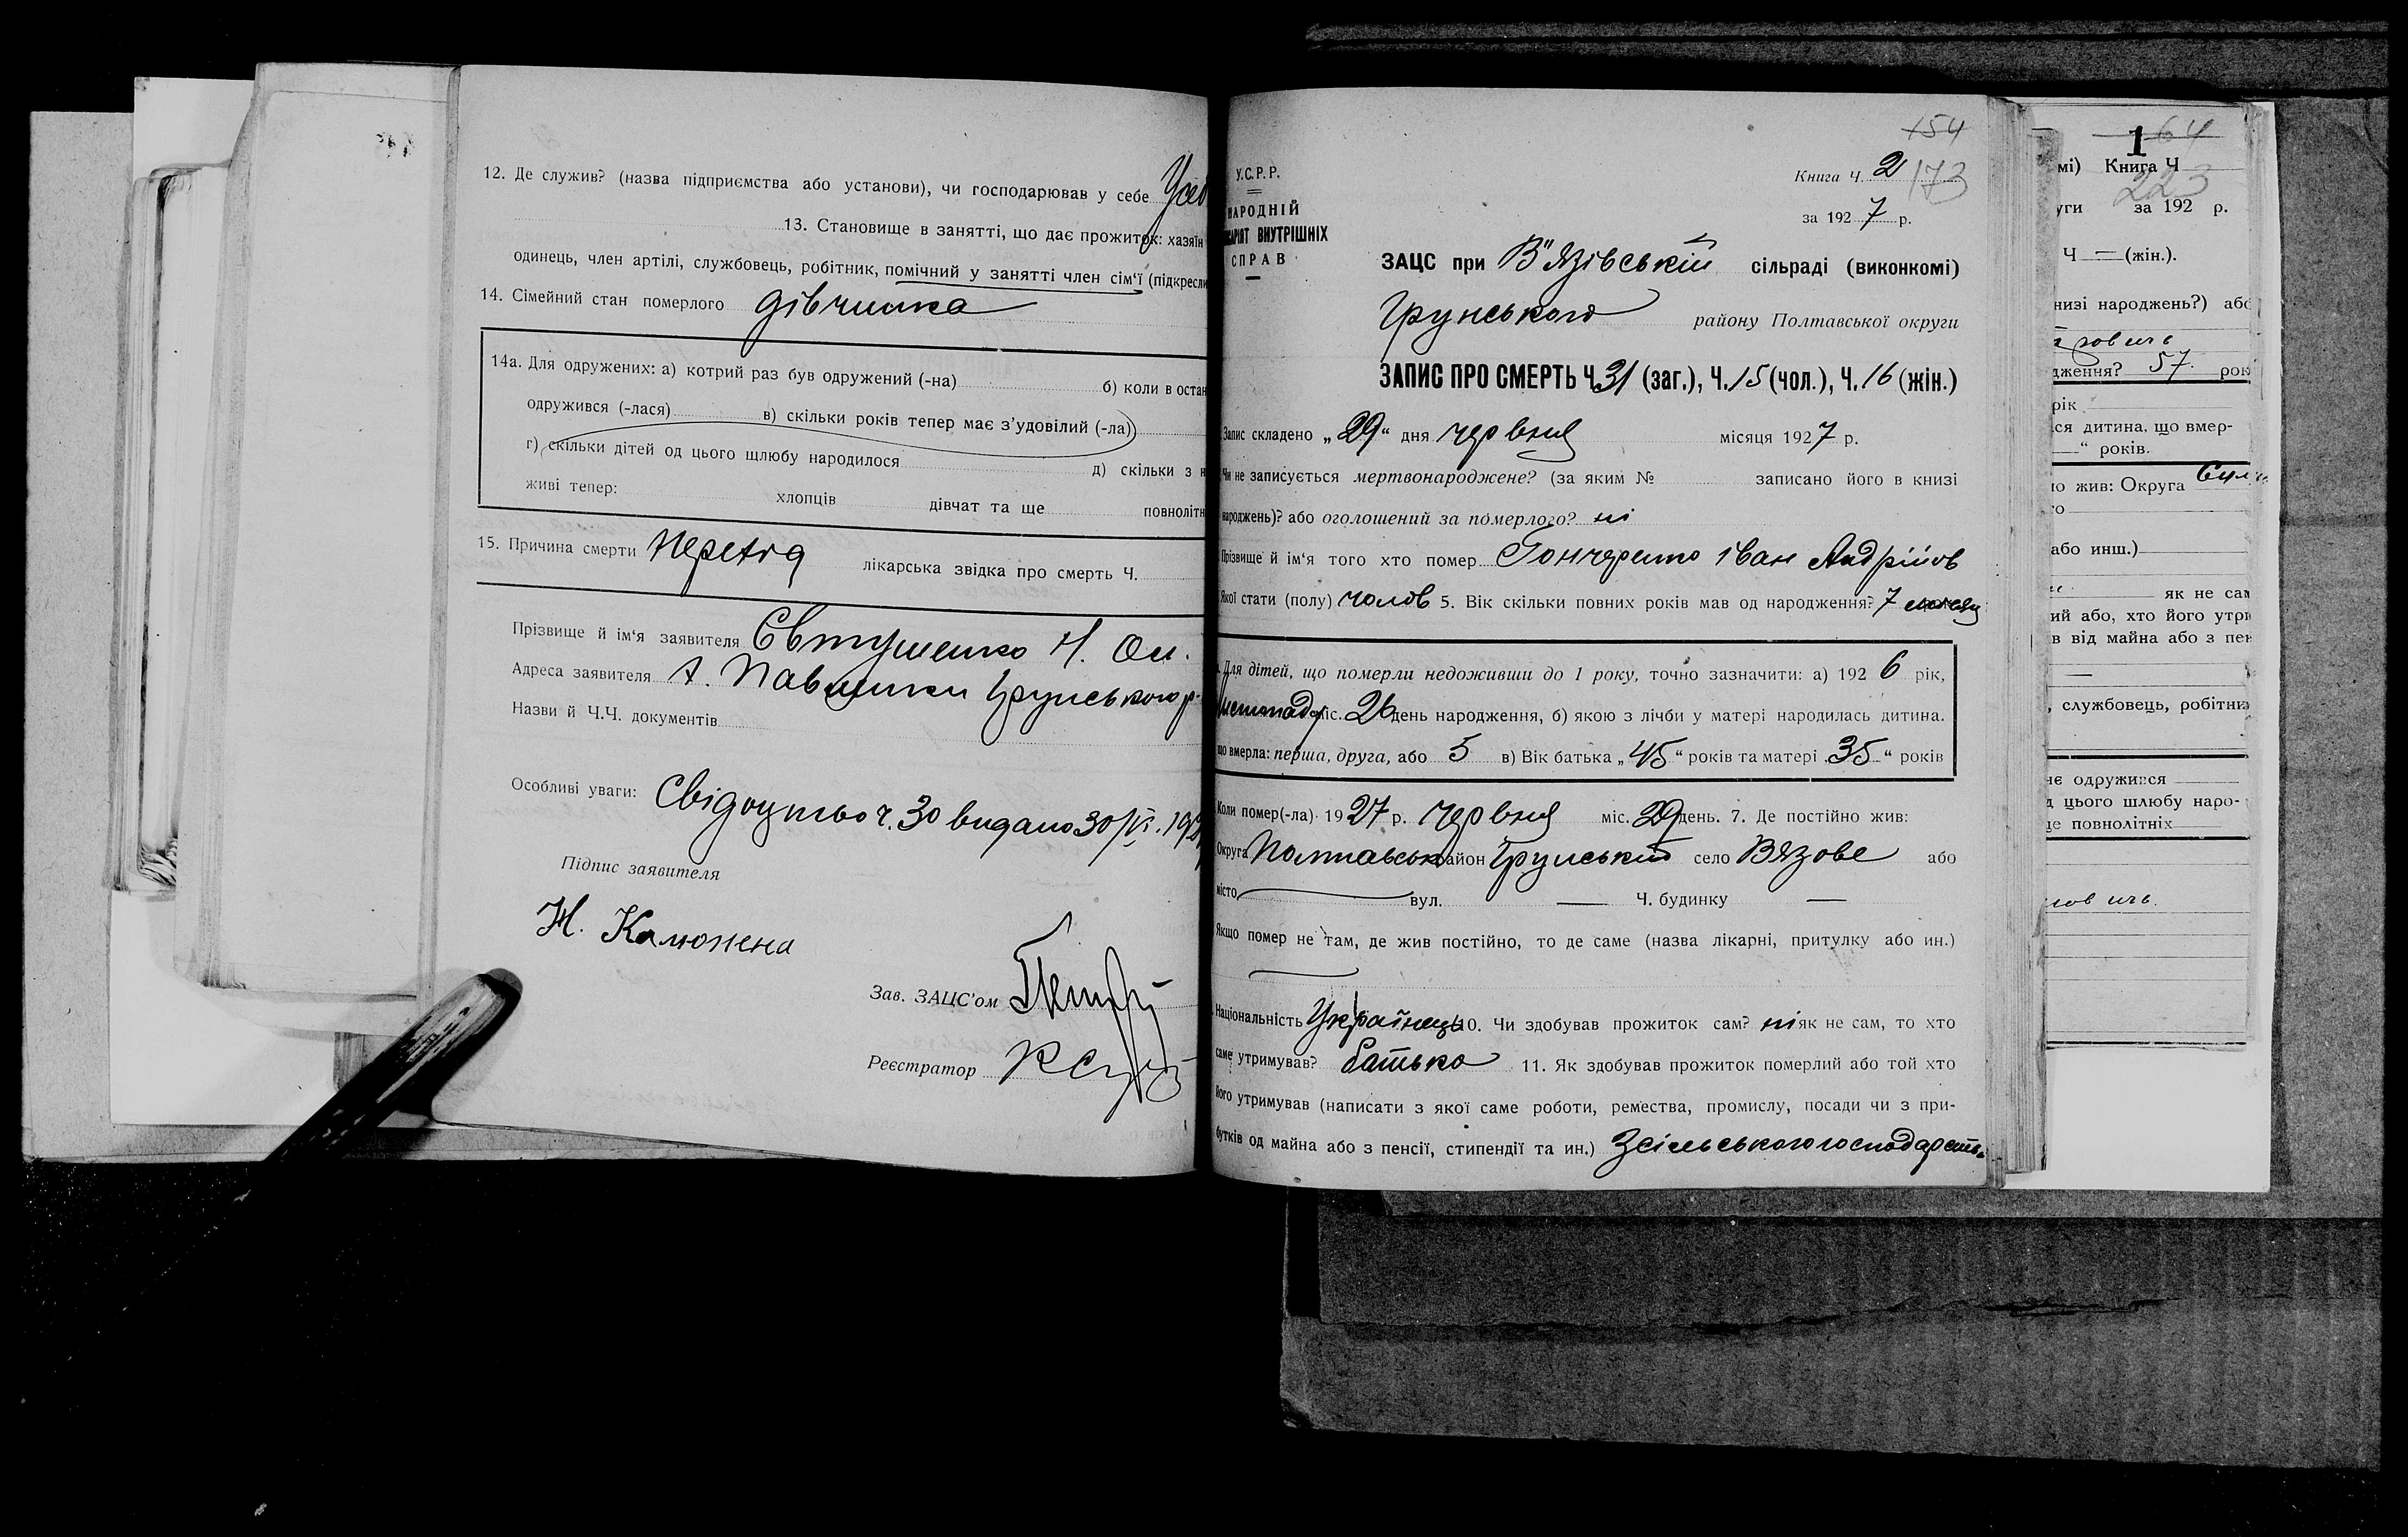 12. Де служив? (назва підприємства або установи), чи господарював у себе
13. Становище в занятті, що дає прожиток: хазяїн
одинець, член артілі, службовець, робітник, помічний у занятті член сім'ї (підкресли
14. Сімейний стан померлого дівчинка
14а. Для одружених: а) котрий раз був одружений (-на) б) коли в остан
одружився (-лася) в) скільки років тепер має з'удовілий (-ла)
г) скільки дітей од цього шлюбу народилося д) скільки з н
живі тепер: хлопців дівчат та ще повнолітн
15. Причина смерти лікарська звідка про смерть Ч.
Прізвище й ім'я заявителя Євтушенко Н. Ол.
Адреса заявителя х. Павлинки Грунського р.
Назви й Ч.Ч. документів
Особливі уваги: Свідоцтво ч. 30 видано 30/VI. 192
Підпис заявителя
Н.
Зав. ЗАЦС'ом
Реєстратор
154
У.С.Р.Р.
НАРОДНІЙ
ВНУТРІШНІХ
СПРАВ
Книга Ч. 2 173
за 1927 р.
ЗАЦС при В'язівській сільраді (виконкомі)
Грунського району Полтавської округи
ЗАПИС ПРО СМЕРТЬ Ч. 31 (заг.), Ч. 15 (чол.), Ч. 16 (жін.)
Запис складено „29“ дня червня місяця 1927 р.
Чи не записується мертвонароджене? (за яким № записано його в книзі
народжень)? або оголошений за померлого? ні
Прізвище й ім'я того хто помер Гончаренко Іван Андрійов
Якої стати (полу) чолов 5. Вік скільки повних років мав од народження? 7
Для дітей, що померли недоживши до 1 року, точно зазначити: а) 1926 рік,
листопаду міс. 26 день народження, б) якою з лічби у матері народилась дитина.
що вмерла: перша, друга, або 5 в) Вік батька „45“ років та матері „35“ років
Коли помер(-ла) 1927 р. червня міс. 29 день. 7. Де постійно жив:
Округа Полтавськ район Грунський село Вязове або
місто вул. Ч. будинку
Якщо помер не там, де жив постійно, то де саме (назва лікарні, притулку або ин.)
Національність Українець 10. Чи здобував прожиток сам? ні як не сам, то хто
саме утримував? батько 11. Як здобував прожиток померлий або той хто
його утримував (написати з якої саме роботи, ремества, промислу, посади чи з при-
бутків од майна або з пенсії, стипендії та ин.) Зсільського господарства
1 64
мі) Книга Ч
223
уги за 192 р.
Ч — (жін.).
низі народжень?) або
дження? 57 рок
рік
ся дитина, що вмер-
“ років.
о жив: Округа
го
або инш.)
як не сам
ий або, хто його утри
в від майна або з пен
, службовець, робітни
не одружився
д цього шлюбу наро-
ще повнолітніх